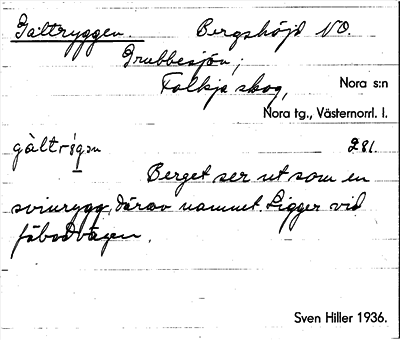 Galtryggen. Bergshöjd NO.
Grubbesjön,
Folkja skog, Nora s:n
Nora tg., Västernorrl. l.
281.
Berget ser ut som en
svinrygg, därav namnet. Ligger vid
fäbodvägen.
Sven Hiller 1936.